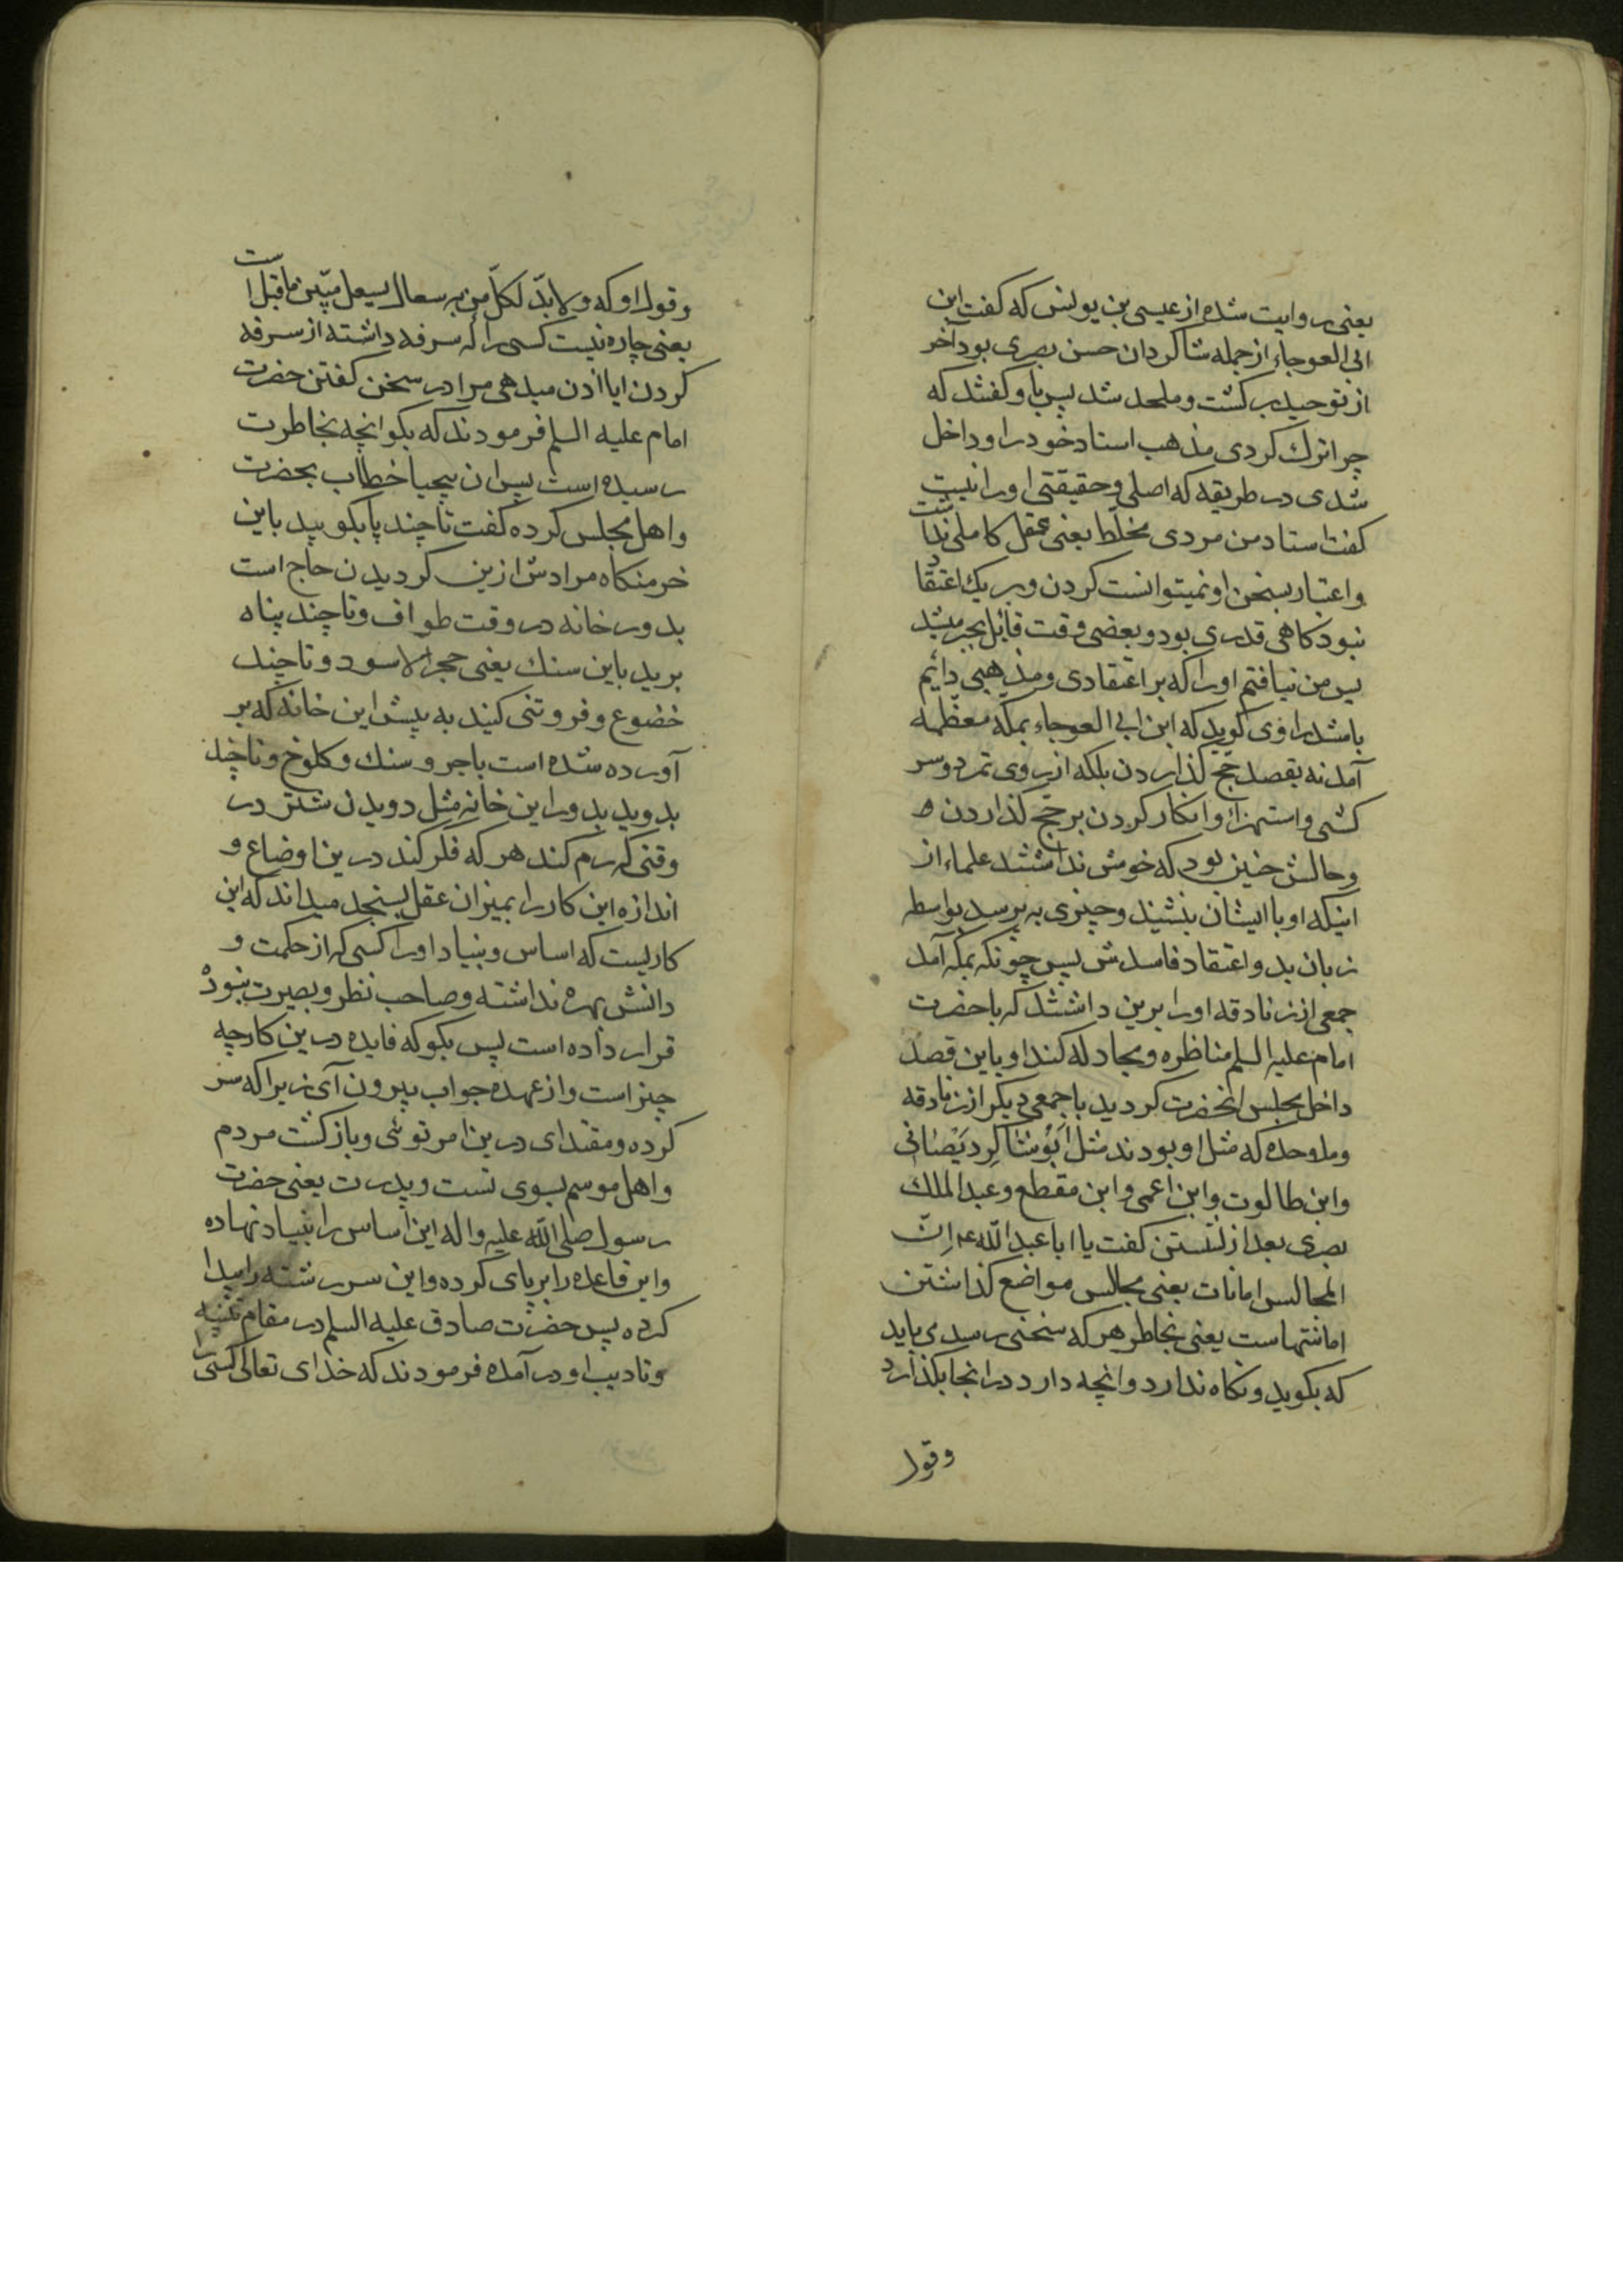 یعنی روایت شده از عیسی بن یونس که کفت ابن
ابی العوجاء از جمله شاکردان حسن بصری بود آخر
از توحید برکشت و ملحد شد پس باو کفتند که
چرا ترك کردی مذهب استاد خود را و داخل
شدی در طریقه که اصلی و حقیقتی او را نیست
کفت استاد من مردی مخلط یعنی عقل کاملی نداشت
و اعتبار بسخن او نمیتوانست کردن و بر یك اعتقاد
نبود کاهی قدری بود و بعضی وقت قائل بجبر میشد
پس من نیافتم او را که بر اعتقادی و مذهبی دایم
باشد راوی کوید که ابن ابی العوجاء بمکه معظمه
آمد نه بقصد حج کذاردن بلکه از روی تمرد و سر
کشی و استهزاء و انکار کردن بر حج کذاردن
و حالش چنین بود که خوش نداشتند علماء از
اینکه او با ایشان بنشیند و چیزی به پرسد بواسطه
زبان بد و اعتقاد فاسدش پس چونکه بمکه آمد
جمعی از زنادقه او را برین داشتند که با حضرت
امام علیه السلم مناظره و مجادله کند او باین قصد
داخل مجلس انحضرت کردید با جمعی دیکر از زنادقه
و ملاحده که مثل او بودند مثل اَبوُشاکِر دیَصْانی
و ابن طالوت و ابن اعمی و ابن مقطع و عبد الملك
بصری بعد از نشستن کفت یا ابا عبد اللّه ع اِنّ
المجالس امانات یعنی مجالس مواضع کذاشتن
امانتهاست یعنی بخاطر هر که سخنی رسد می باید
که بکوید و نکاه ندارد و انچه دارد در انجا بکذارد
و قول
و قول او که و لا بدّ لکلّ من به سعال یسعل مبیّن ماقبل است
یعنی چاره نیست کسی را که سرفه داشته از سرفه
کردن ایا اذن میدهی مرا در سخن کفتن حضرت
امام علیه السلم فرمودند که بکو انچه بخاطرت
رسیده است پس ان بیحیا خطاب بحضرت
و اهل مجلس کرده کفت تا چند پا بکوبید باین
خرمنکاه مرادش ازین کردیدن حاج است
بدور خانه در وقت طواف و تا چند پناه
برید باین سنك یعنی حجر الاسود و تا چند
خضوع و فروتنی کنید به پیش این خانه که بر
آورده شده است باجر و سنك و کلوخ و تا چند
بدوید بدور این خانه مثل دویدن شتر در
وقتی که رم کند هر که فکر کند درین اوضاع و
اندازه این کار را بمیزان عقل بسنجد میداند که این
کاریست که اساس و بنیاد او را کسی که از حکمت و
دانش بهره نداشته و صاحب نظر و بصیرت نبوده
قرار داده است پس بکو که فایده درین کار چه
چیز است و از عهده جواب بیرون آی زیرا که سر
کرده و مقتدای درین امر توئی و بازکشت مردم
و اهل موسم بسوی تست و پدرت یعنی حضرت
رسول صلی اللّه علیه و اله این اساس را بنیاد نهاده
و این قاعده را برپای کرده و این سررشته را پیدا
کرده پس حضرت صادق علیه السلم در مقام تنبیه
و تادیب او در آمده فرمودند که خدای تعالی کسی را